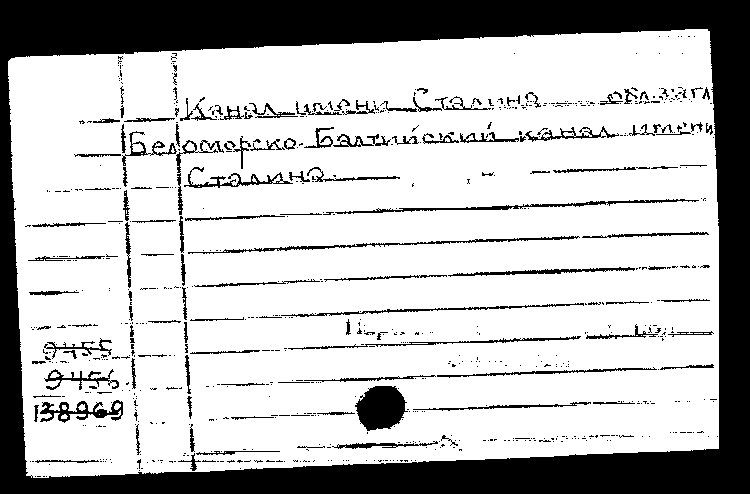 Канал имени Сталина обл.загл
Беломорско-Балтийский канал имени
Сталина.
9455
9456
138969